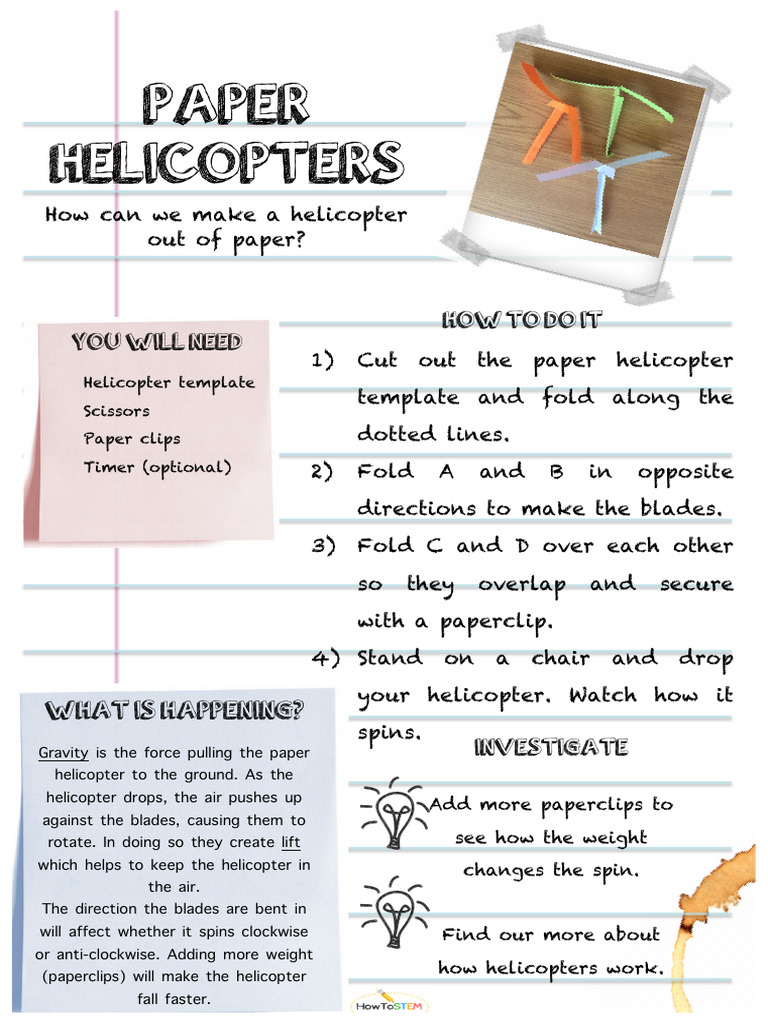 PAPER
HELICOPTERS
How can we make a helicopter
out of paper?
YOU WILL NEED
Helicopter template
Scissors
Paper clips
Timer (optional)
HOW TO DO IT
1) Cut out the paper helicopter
template and fold along the
dotted lines.
2) Fold A and B in opposite
directions to make the blades.
3) Fold C and D over each other
so they overlap and secure
with a paperclip.
4) Stand on a chair and drop
your helicopter. Watch how it
spins.
WHAT IS HAPPENING?
Gravity is the force pulling the paper
helicopter to the ground. As the
helicopter drops, the air pushes up
against the blades, causing them to
rotate. In doing so they create lift
which helps to keep the helicopter in
the air.
The direction the blades are bent in
will affect whether it spins clockwise
or anti-clockwise. Adding more weight
(paperclips) will make the helicopter
fall faster.
INVESTIGATE
Add more paperclips to
see how the weight
changes the spin.
Find our more about
how helicopters work.
HowToSTEM